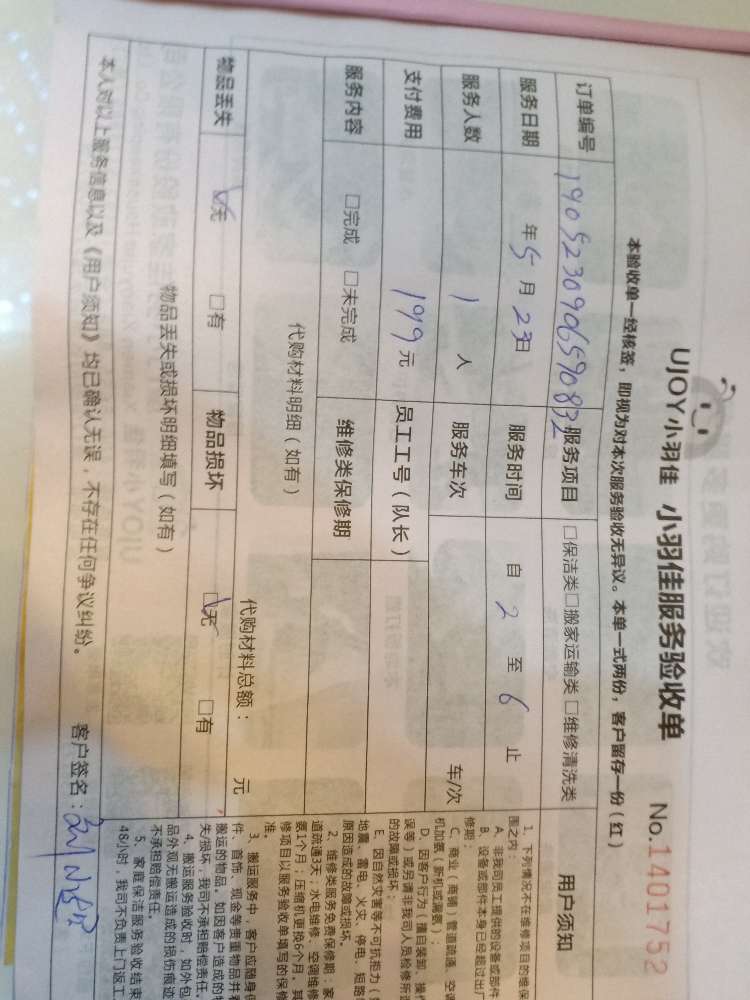 UJOY小羽佳 小羽佳服务验收单 No.1401752
本验收单一经核签，即视为对本次服务验收无异议。本单一式两份，客户留存一份（红）
订单编号 190523090659083 服务项目 □保洁类□搬家运输类□维修清洗类
服务日期 年5月23日 服务时间 自2至6止
服务人数 1人 服务车次 车/次
支付费用 199元 员工工号（队长）
服务内容 □完成 □未完成 维修类保修期
代购材料明细（如有） 代购材料总额： 元
物品丢失 □无 □有 物品损坏 □无 □有
物品丢失或损坏明细填写（如有）
本人对以上服务信息以及《用户须知》均已确认无误，不存在任何争议纠纷。 客户签名：
用户须知
1、下列情况不在维修项目的维保
围之内：
A、非我司员工提供的设备或部件
B、设备或部件本身已经超过出厂
修期：
C、商业（商铺）管道疏通、空调
机加氨（新机或漏氨）；
D、因客户行为（擅自装卸、操作
误等）或另请非我司人员检修所造
的故障或损坏；
E、因自然灾害等不可抗拒为（
地震、雷电、火灾、停电、短路
原因造成的故障或损坏。
2、维修类服务免费保修期：家
道疏通3天；水电维修、空调维修
氨1个月；压缩机更换6个月，其
修项目以服务验收单填写的保修
准。
3、搬运服务中，客户应随身保
件、首饰、现金等贵重物品并看
搬运的物品，如因客户造成的物
失/损坏，我司不承担赔偿责任。
4、搬运服务验收时，如外包
品外观无搬运造成的损伤痕迹
不承担赔偿责任。
5、家庭保洁服务验收结束
48小时，我司不负责上门返工